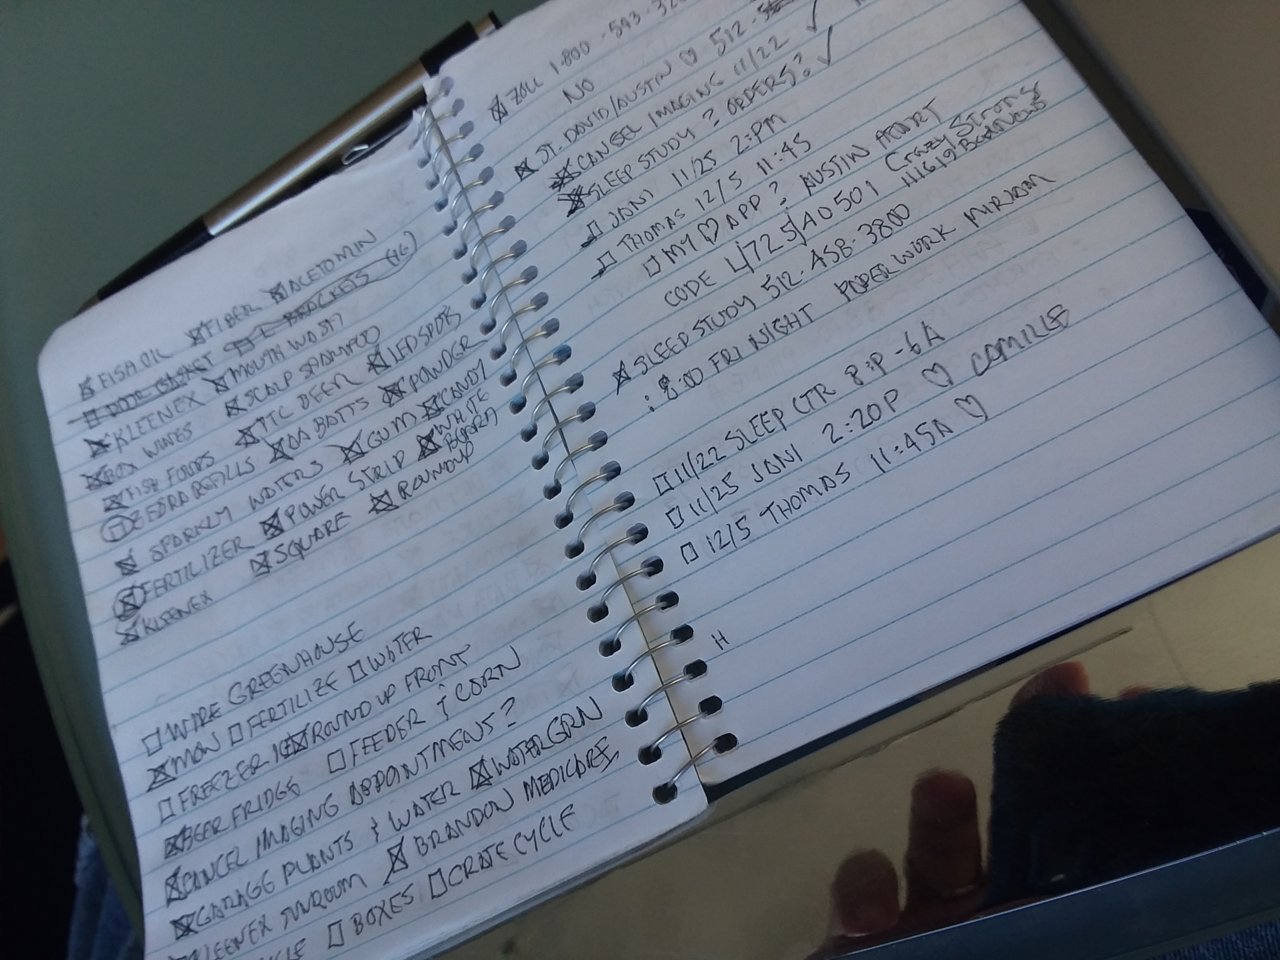 FISH OIL FIBER ACETOMIN
GASKET BRACKETS (16)
KLEENEX MOUTH WASH
BOX WINES SCALP SHAMPOO
FISH FOODS TTC BEER LED SPOTS
ZEBRA REFILLS AA BATTS POWDER
SPARKLY WATERS GUM CANDY
FERTILIZER POWER STRIP WHITE BOARD
KLEENEX SQUARE ROUNDUP
WIRE GREENHOUSE
MOW FERTILIZE WATER
FREEZER ROUND UP FRONT
BEER FRIDGE FEEDER & CORN
CANCEL IMAGING APPOINTMENT?
GARAGE PLANTS & WATER WATER GRN
KLEENEX SUNROOM BRANDON MEDICARE
BOXES CRATE CYCLE
ZOLL 1-800-593-
NO
ST. DAVID/AUSTIN ♡ 512-
CANSEL IMAGING 11/22 ✓
SLEEP STUDY? DEPERS? ✓
JANI 11/25 2:PM
THOMAS 12/5 11:45
MY ♡ APP? AUSTIN HEART
CODE 4/725/A0501 Crazy Strong
SLEEP STUDY 512-458-3800
: 8:00 FRI NIGHT PAPERWORK MIRIAM
11/22 SLEEP CTR 8:P-6A
11/25 JANI 2:20P ♡ CAMILLE
12/5 THOMAS 11:45A ♡
H